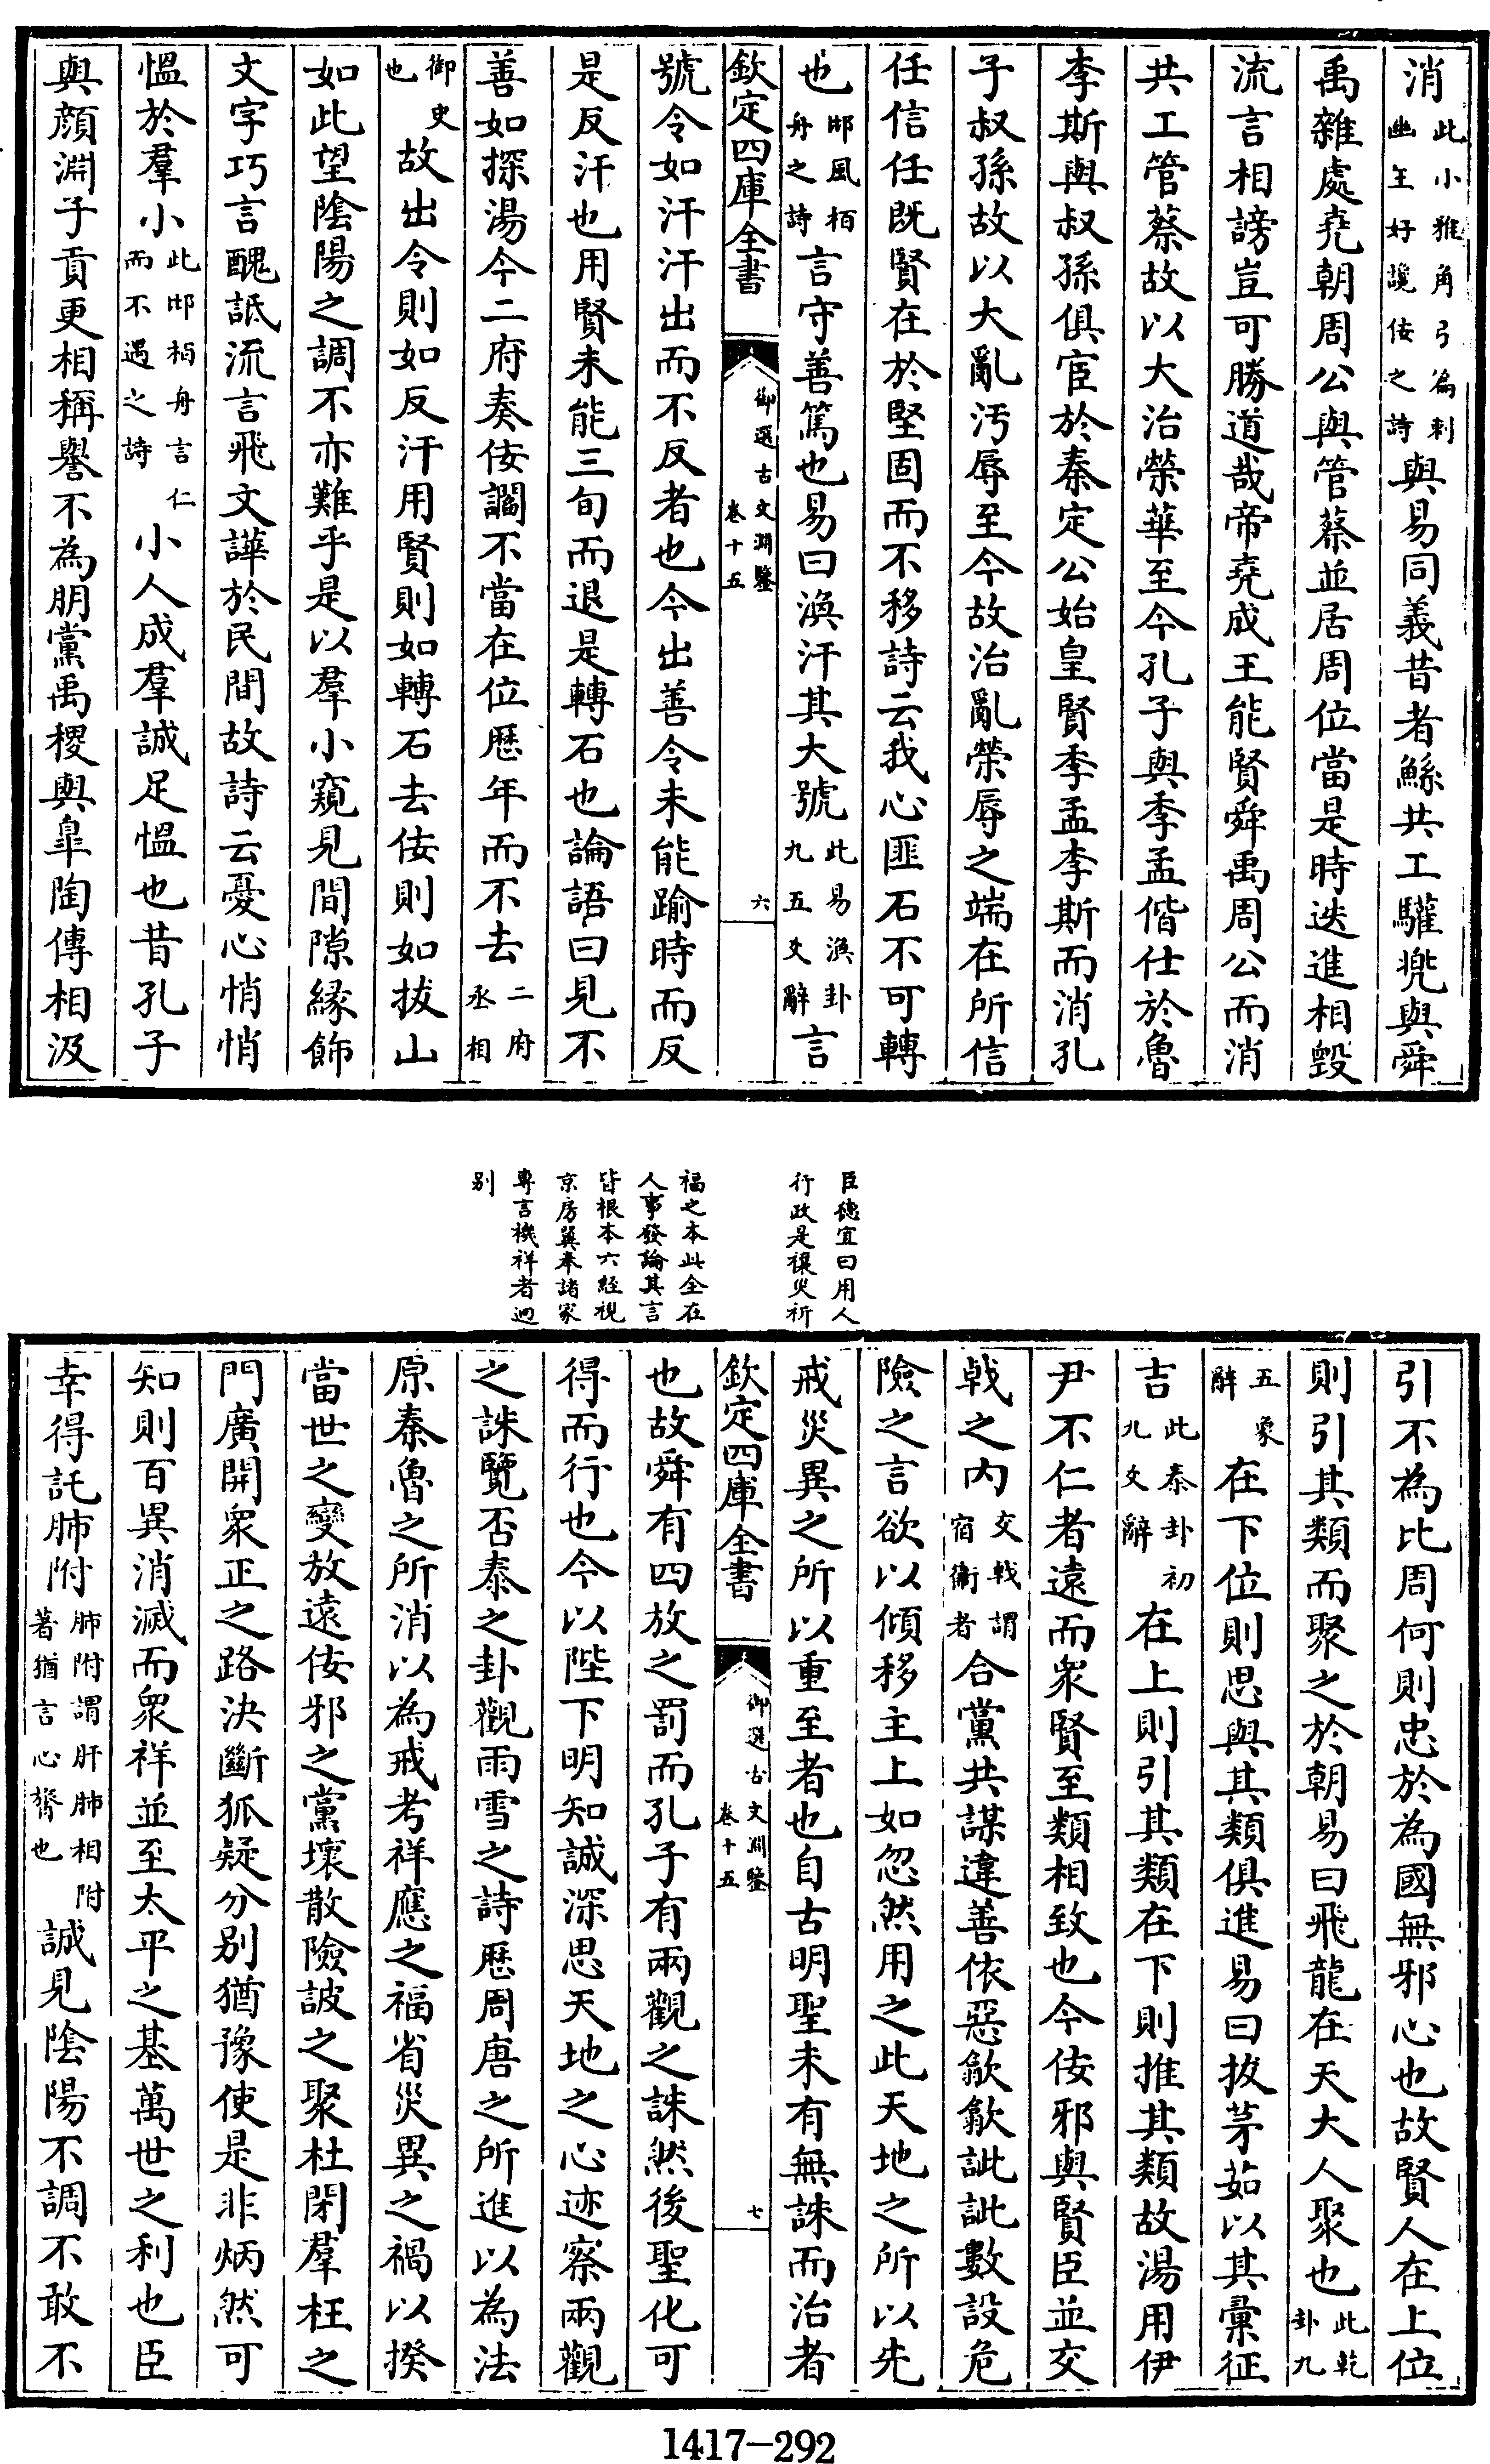 消此小雅角弓為刺幽王好讒佞之詩與易同義昔者鯀共工驩兜與舜
禹雜處堯朝周公與管蔡並居周位當是時迭進相毀
流言相謗豈可勝道哉帝堯成王能賢舜禹周公而消
共工管蔡故以大治榮華至今孔子與季孟偕仕於魯
李斯與叔孫俱宦於秦定公始皇賢季孟李斯而消孔
子叔孫故以大亂汚辱至今故治亂榮辱之端在所信
任信任既賢在於堅固而不移詩云我心匪石不可轉
也邶風栢舟之詩言守善篤也易曰渙汗其大號此易渙卦九五爻辭言
欽定四庫全書 御選古文淵鑒卷十五 六
號令如汗汗出而不反者也今出善令未能踰時而反
是反汗也用賢未能三旬而退是轉石也論語曰見不
善如探湯今二府奏佞讇不當在位歷年而不去二府丞相
御史也故出令則如反汗用賢則如轉石去佞則如拔山
如此望陰陽之調不亦難乎是以羣小窺見間隙緣飾
文字巧言醜詆流言飛文譁於民間故詩云憂心悄悄
慍於羣小此邶栢舟言仁而不遇之詩小人成羣誠足慍也昔孔子
與顔淵子貢更相稱譽不為朋黨禹稷與臯陶傳相汲
臣德宜曰用人
行政是禳災祈
福之本此全在
人事發論其言
皆根本六經視
京房翼奉諸家
專言機祥者迥
别
引不為比周何則忠於為國無邪心也故賢人在上位
則引其類而聚之於朝易曰飛龍在天大人聚也此乾卦九
五象辭在下位則思與其類俱進易曰拔茅茹以其彙征
吉此泰卦初九爻辭在上則引其類在下則推其類故湯用伊
尹不仁者遠而衆賢至類相致也今佞邪與賢臣並交
戟之内交戟謂宿衞者合黨共謀違善依惡歙歙訿訿數設危
險之言欲以傾移主上如忽然用之此天地之所以先
戒災異之所以重至者也自古明聖未有無誅而治者
欽定四庫全書 御選古文淵鑒卷十五 七
也故舜有四放之罰而孔子有兩觀之誅然後聖化可
得而行也今以陛下明知誠深思天地之心迹察兩觀
之誅覽否泰之卦觀雨雪之詩歷周唐之所進以為法
原秦魯之所消以為戒考祥應之福省災異之禍以揆
當世之變放遠佞邪之黨壞散險詖之聚杜閉羣枉之
門廣開衆正之路決斷狐疑分别猶豫使是非炳然可
知則百異消滅而衆祥並至太平之基萬世之利也臣
幸得託肺附肺附謂肝肺相附著猶言心膂也誠見陰陽不調不敢不
1417-292